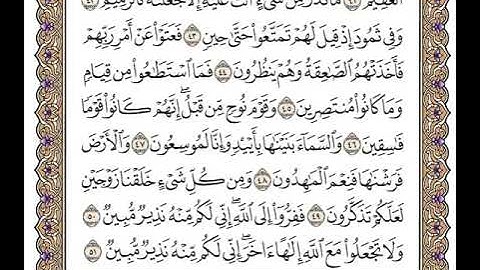 ٱلْعَقِيمَ ٤١ مَا تَذَرُ مِن شَىْءٍ أَتَتْ عَلَيْهِ إِلَّا جَعَلَتْهُ كَٱلرَّمِيمِ ٤٢
وَفِى ثَمُودَ إِذْ قِيلَ لَهُمْ تَمَتَّعُوا۟ حَتَّىٰ حِينٍ ٤٣ فَعَتَوْا۟ عَنْ أَمْرِ رَبِّهِمْ
فَأَخَذَتْهُمُ ٱلصَّـٰعِقَةُ وَهُمْ يَنظُرُونَ ٤٤ فَمَا ٱسْتَطَـٰعُوا۟ مِن قِيَامٍ
وَمَا كَانُوا۟ مُنتَصِرِينَ ٤٥ وَقَوْمَ نُوحٍ مِّن قَبْلُ ۖ إِنَّهُمْ كَانُوا۟ قَوْمًا
فَـٰسِقِينَ ٤٦ وَٱلسَّمَآءَ بَنَيْنَـٰهَا بِأَيْي۟دٍ وَإِنَّا لَمُوسِعُونَ ٤٧ وَٱلْأَرْضَ
فَرَشْنَـٰهَا فَنِعْمَ ٱلْمَـٰهِدُونَ ٤٨ وَمِن كُلِّ شَىْءٍ خَلَقْنَا زَوْجَيْنِ
لَعَلَّكُمْ تَذَكَّرُونَ ٤٩ فَفِرُّوٓا۟ إِلَى ٱللَّهِ ۖ إِنِّى لَكُم مِّنْهُ نَذِيرٌ مُّبِينٌ ٥٠
وَلَا تَجْعَلُوا۟ مَعَ ٱللَّهِ إِلَـٰهًا ءَاخَرَ ۖ إِنِّى لَكُم مِّنْهُ نَذِيرٌ مُّبِينٌ ٥١